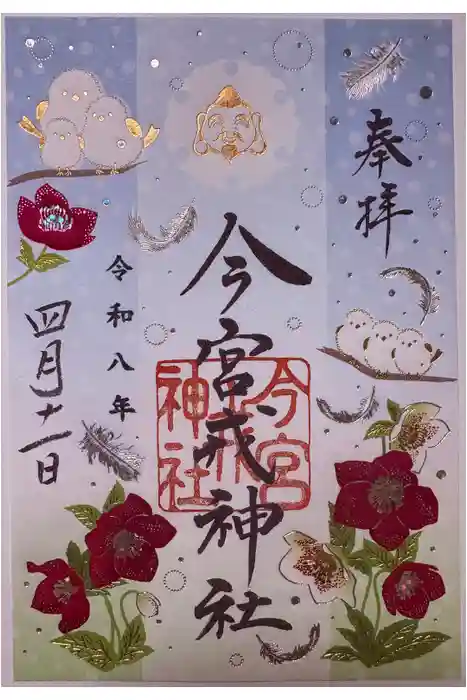 奉拝
今宮戎神社
今宮戎神社
令和八年
四月十一日